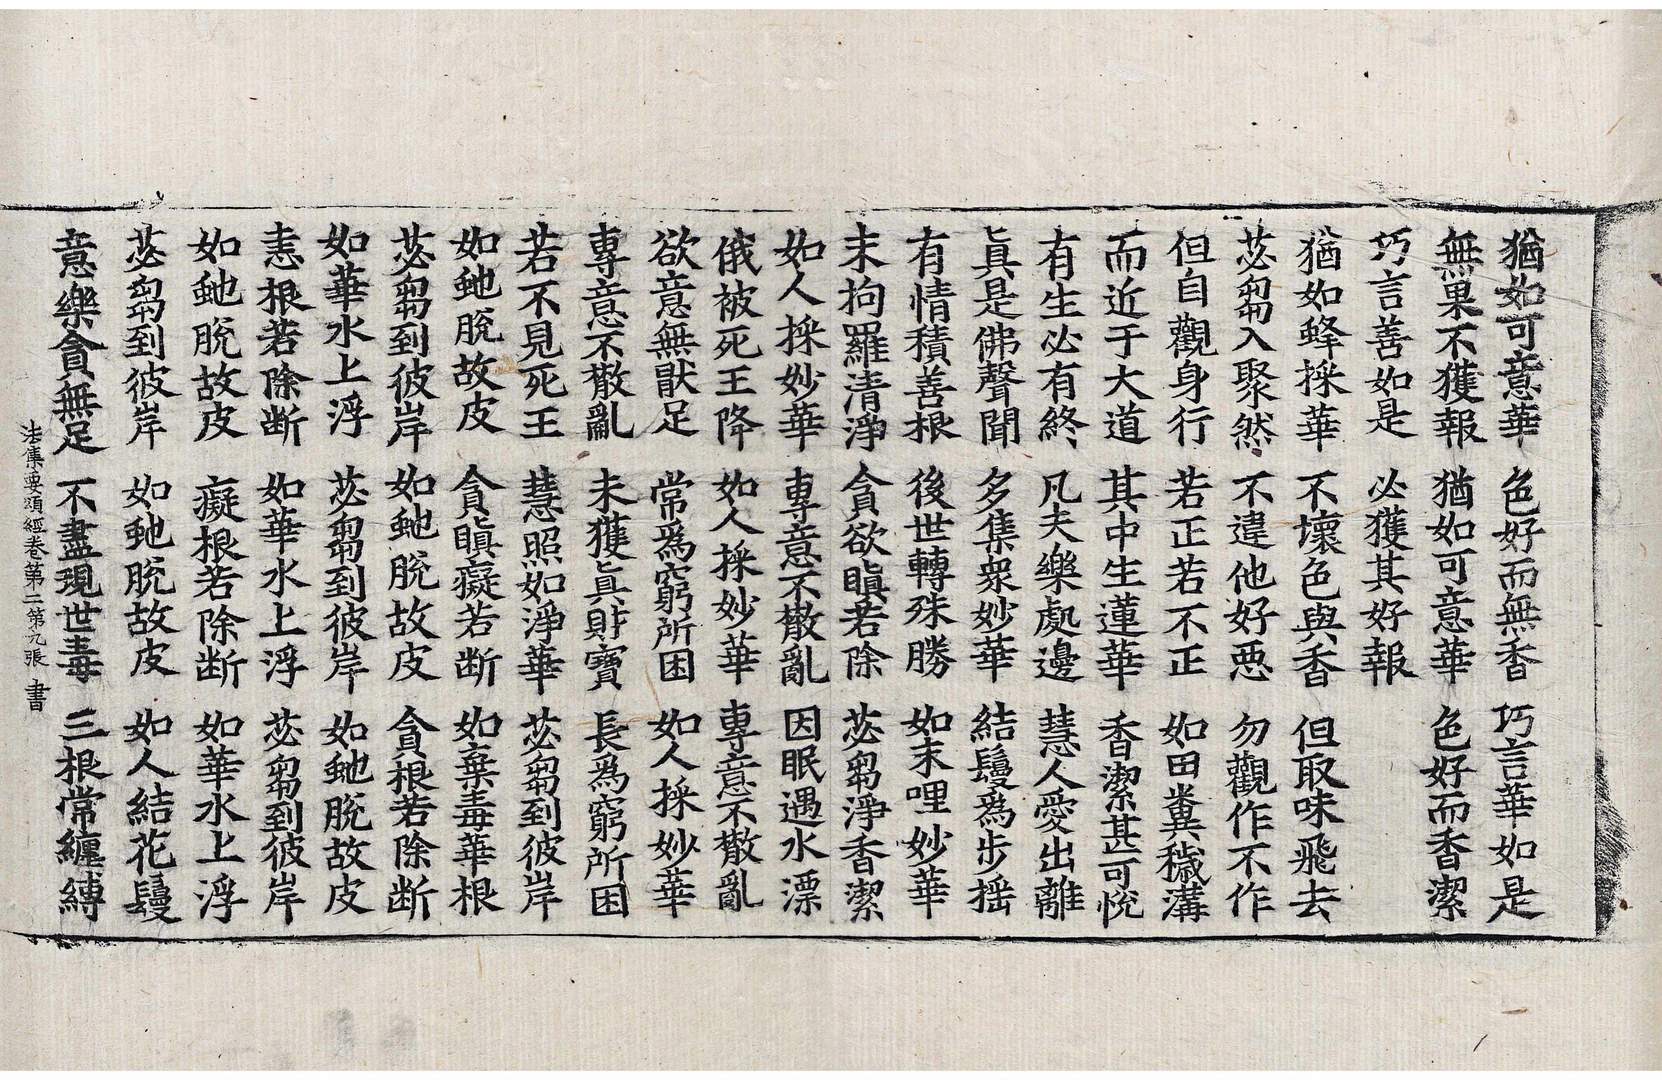 猶如可意華 色好而無香 巧言華如是
無果不獲報 猶如可意華 色好而香潔
巧言善如是 必獲其好報
猶如蜂採華 不壞色與香 但取味飛去
苾芻入聚然 不違他好惡 勿觀作不作
但自觀身行 若正若不正 如田糞穢溝
而近于大道 其中生蓮華 香潔甚可悅
有生必有終 凡夫樂處邊 慧人愛出離
眞是佛聲聞 多集衆妙華 結鬘爲步搖
有情積善根 後世轉殊勝 如末哩妙華
末拘羅清淨 貪欲瞋若除 苾芻淨香潔
如人採妙華 專意不散亂 因眠遇水漂
俄被死王降 如人採妙華 專意不散亂
欲意無猒足 常爲窮所困 如人採妙華
專意不散亂 未獲眞財寶 長爲窮所困
若不見死王 慧照如淨華 苾芻到彼岸
如虵脫故皮 貪瞋癡若断 如棄毒華根
苾芻到彼岸 如虵脫故皮 貪根若除断
如華水上浮 苾芻到彼岸 如虵脫故皮
恚根若除断 如華水上浮 苾芻到彼岸
如虵脫故皮 癡根若除断 如華水上浮
苾芻到彼岸 如虵脫故皮 如人結花鬘
意樂貪無足 不盡現世毒 三根常纏縛
法集要頌經卷第二 第九張 書